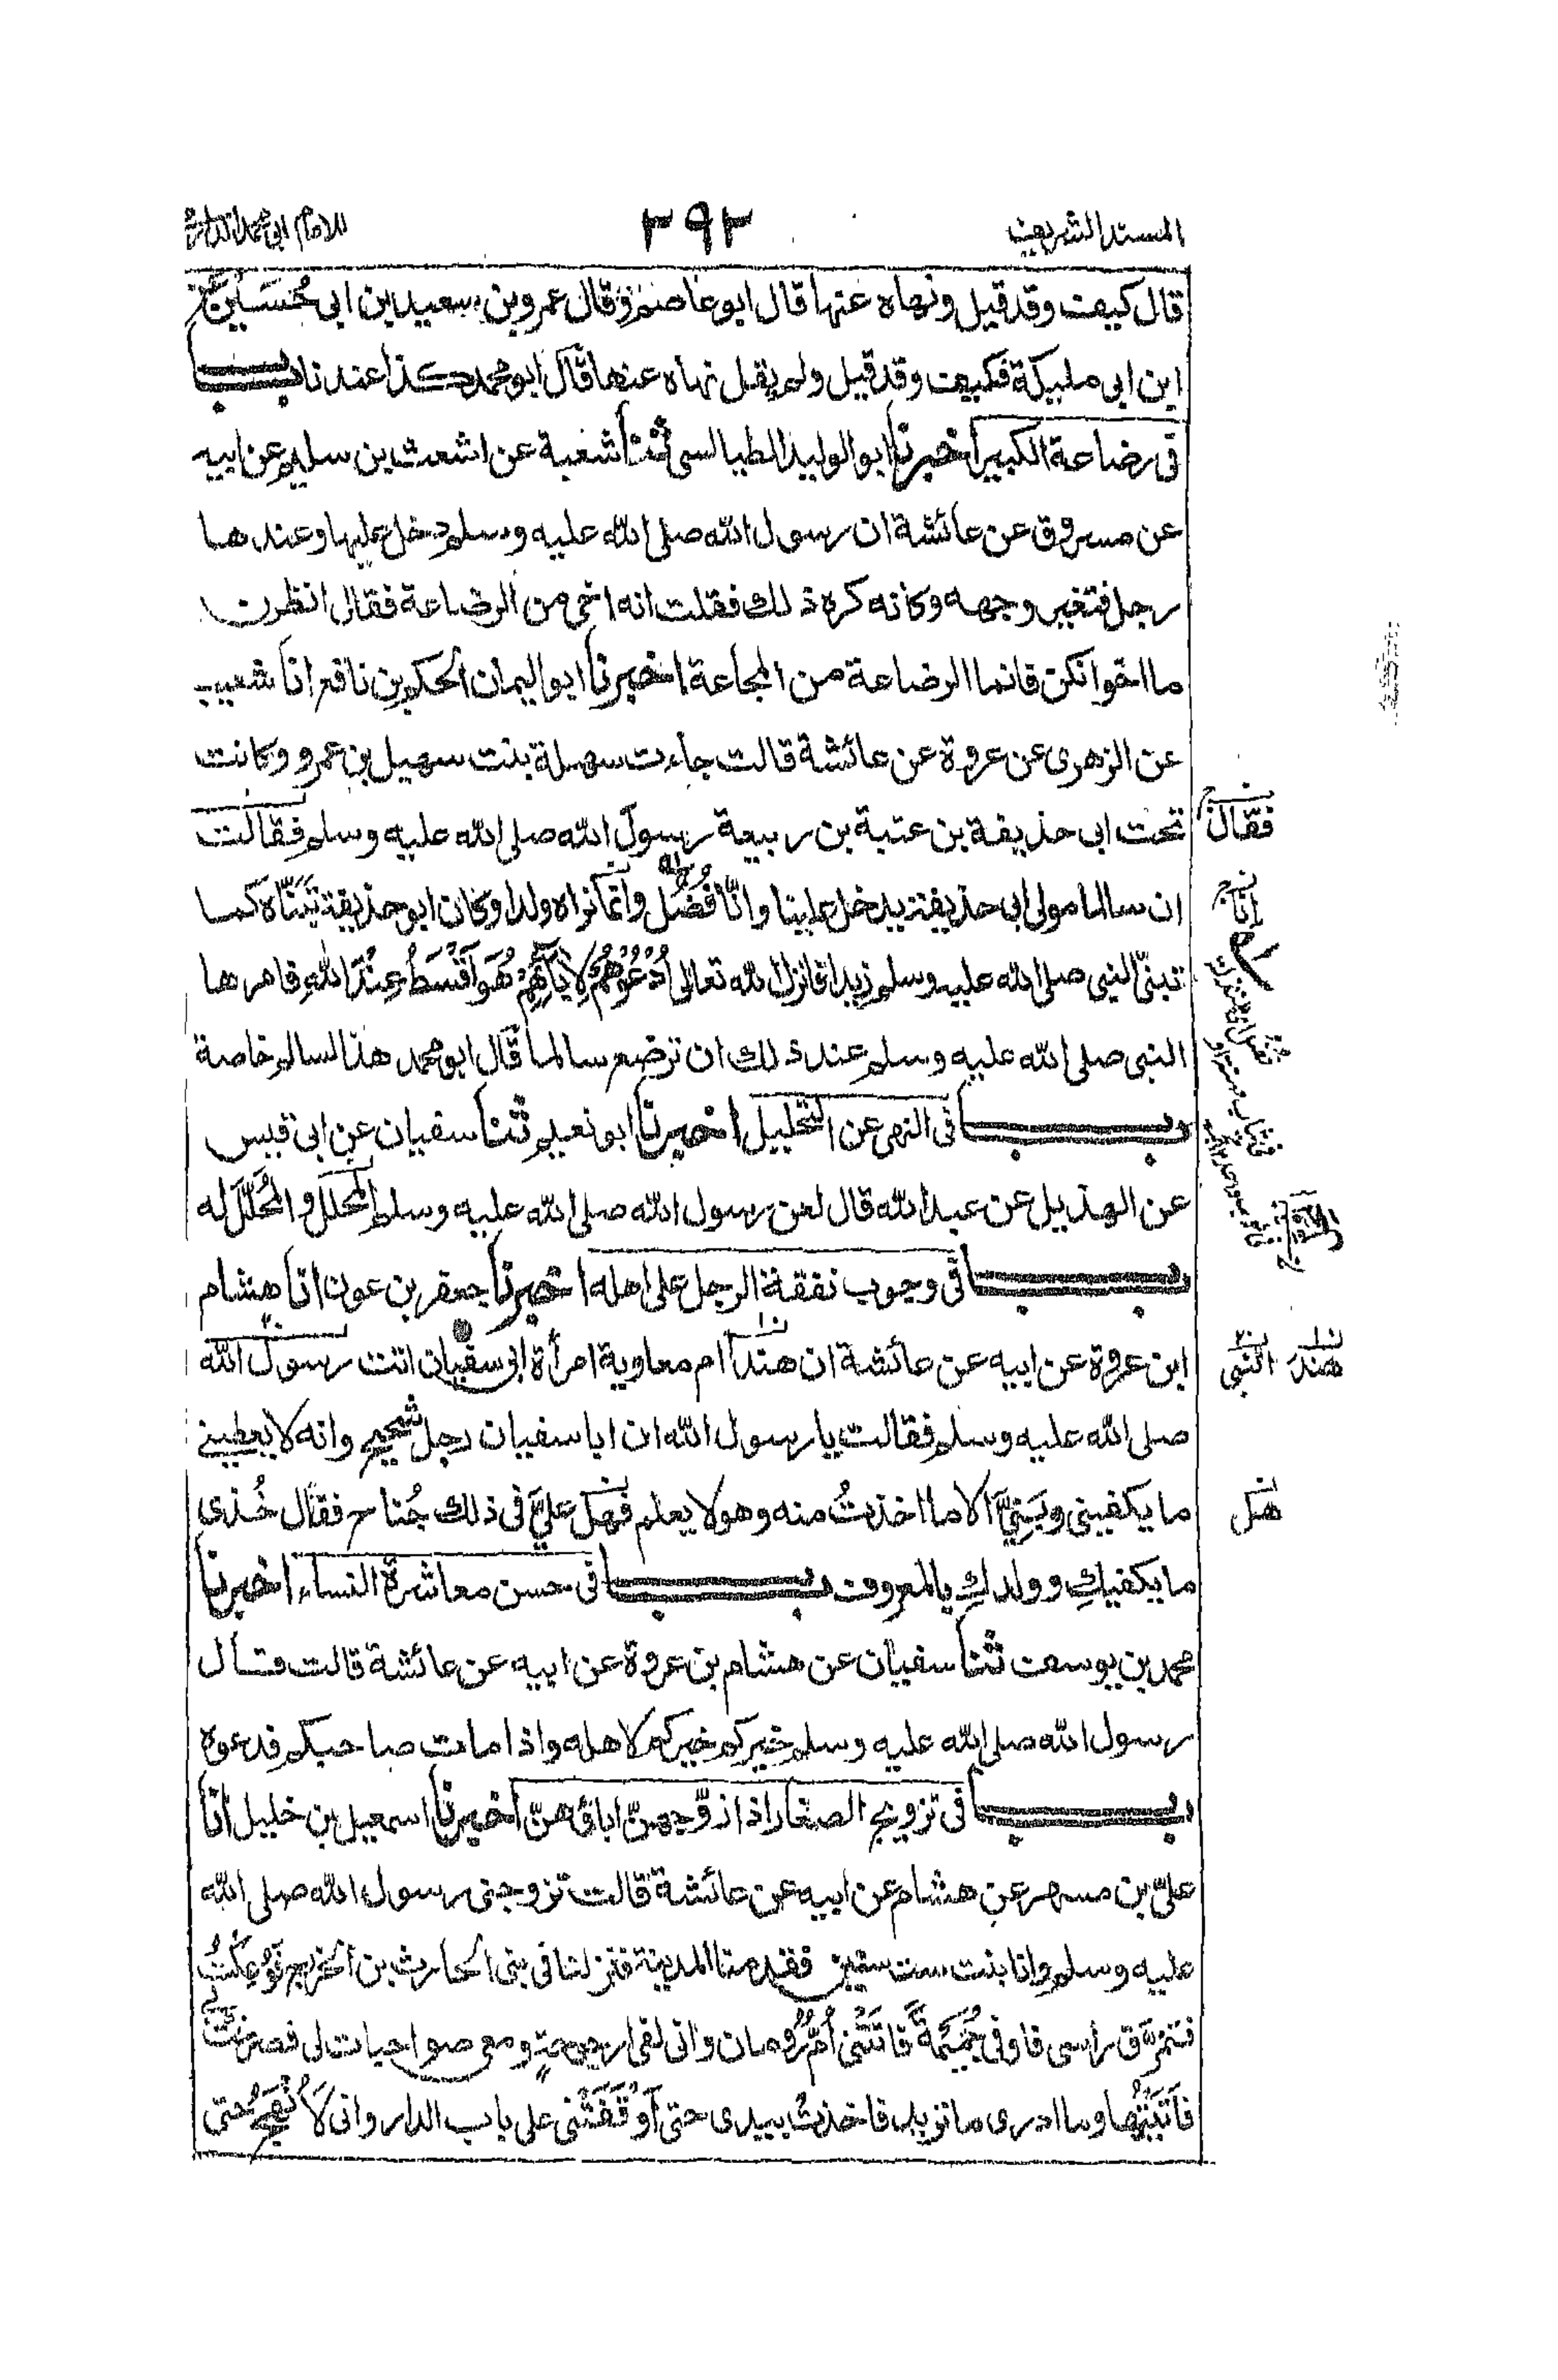 المسند الشريف
٢٩٢
للامام ابي محمد الدارمي
قال كيف وقد قيل ونهاه عنها قال ابو عاصم وقال عمرو بن سعيد بن ابي حسين عن
ابن ابي مليكة فكيف وقد قيل ولم يقل نهاه عنها قال ابو محمد كذا عندنا باب
في رضاعة الكبير اخبرنا ابو الوليد الطيالسي ثنا شعبة عن اشعث بن سليم عن ابيه
عن مسروق عن عائشة ان رسول الله صلى الله عليه وسلم دخل عليها وعندها
رجل فتغير وجهه وكانه كره ذلك فقلت انه اخي من الرضاعة فقال انظرن
ما اخوانكن فانما الرضاعة من المجاعة اخبرنا ابو اليمان الحكم بن نافع انا شعيب
عن الزهرى عن عروة عن عائشة قالت جاءت سهلة بنت سهيل بن عمرو وكانت
تحت ابي حذيفة بن عتبة بن ربيعة رسول الله صلى الله عليه وسلم فقالت
فقال
ان سالما مولى ابي حذيفة يدخل علينا وانا فُضُل وانما نراه ولدا وكان ابو حذيفة تَبَنَّاه كما
انا
تبنّى النبي صلى الله عليه وسلم زيدا فانزل الله تعالى اُدْعُوْهُمْ لِاٰبَآئِهِمْ هُوَ اَقْسَطُ عِنْدَ اللهِ فامرها
النبي صلى الله عليه وسلم عند ذلك ان ترضع سالما قال ابو محمد هذا لسالم خاصة
باب في النهى عن التحليل اخبرنا ابو نعيم ثنا سفيان عن ابي قيس
عن الهذيل عن عبد الله قال لعن رسول الله صلى الله عليه وسلم المحلل والمُحَلَّل له
باب في وجوب نفقة الرجل على اهله اخبرنا جعفر بن عون انا هشام
ابن عروة عن ابيه عن عائشة ان هندا ام معاوية امرأة ابي سفيان اتت رسول الله
هند النبي
صلى الله عليه وسلم فقالت يا رسول الله ان ابا سفيان رجل شحيح وانه لا يعطيني
ما يكفيني وبَنِيَّ الا ما اخذتُ منه وهو لا يعلم فهل عليَّ في ذلك جُناح فقال خُذى
هل
ما يكفيكِ وولدكِ بالمعروف باب في حسن معاشرة النساء اخبرنا
محمد بن يوسف ثنا سفيان عن هشام بن عروة عن ابيه عن عائشة قالت قال
رسول الله صلى الله عليه وسلم خيركم خيركم لاهله واذا مات صاحبكم فدعوه
باب في تزويج الصغار اذا زوّجهنّ اباؤهنّ اخبرنا اسمعيل بن خليل انا
عليّ بن مسهر عن هشام عن ابيه عن عائشة قالت تزوجني رسول الله صلى الله
عليه وسلم وانا بنت ست سنين فقدمنا المدينة فنزلنا في بني الحارث بن الخزرج فَوُعِكْتُ
فتمزَّق راسى فاوفى جُمَيْمَةً فاتَتْني اُمُّ رُومان وانى لفى ارجوحةٍ ومعى صواحبات لى فصرخت
فَاَتَيْتُها وما ادرى ما تريد فاخذتْ بيدى حتى اَوْقَفَتْني على باب الدار وانى لَاُنْهَجُ حتى